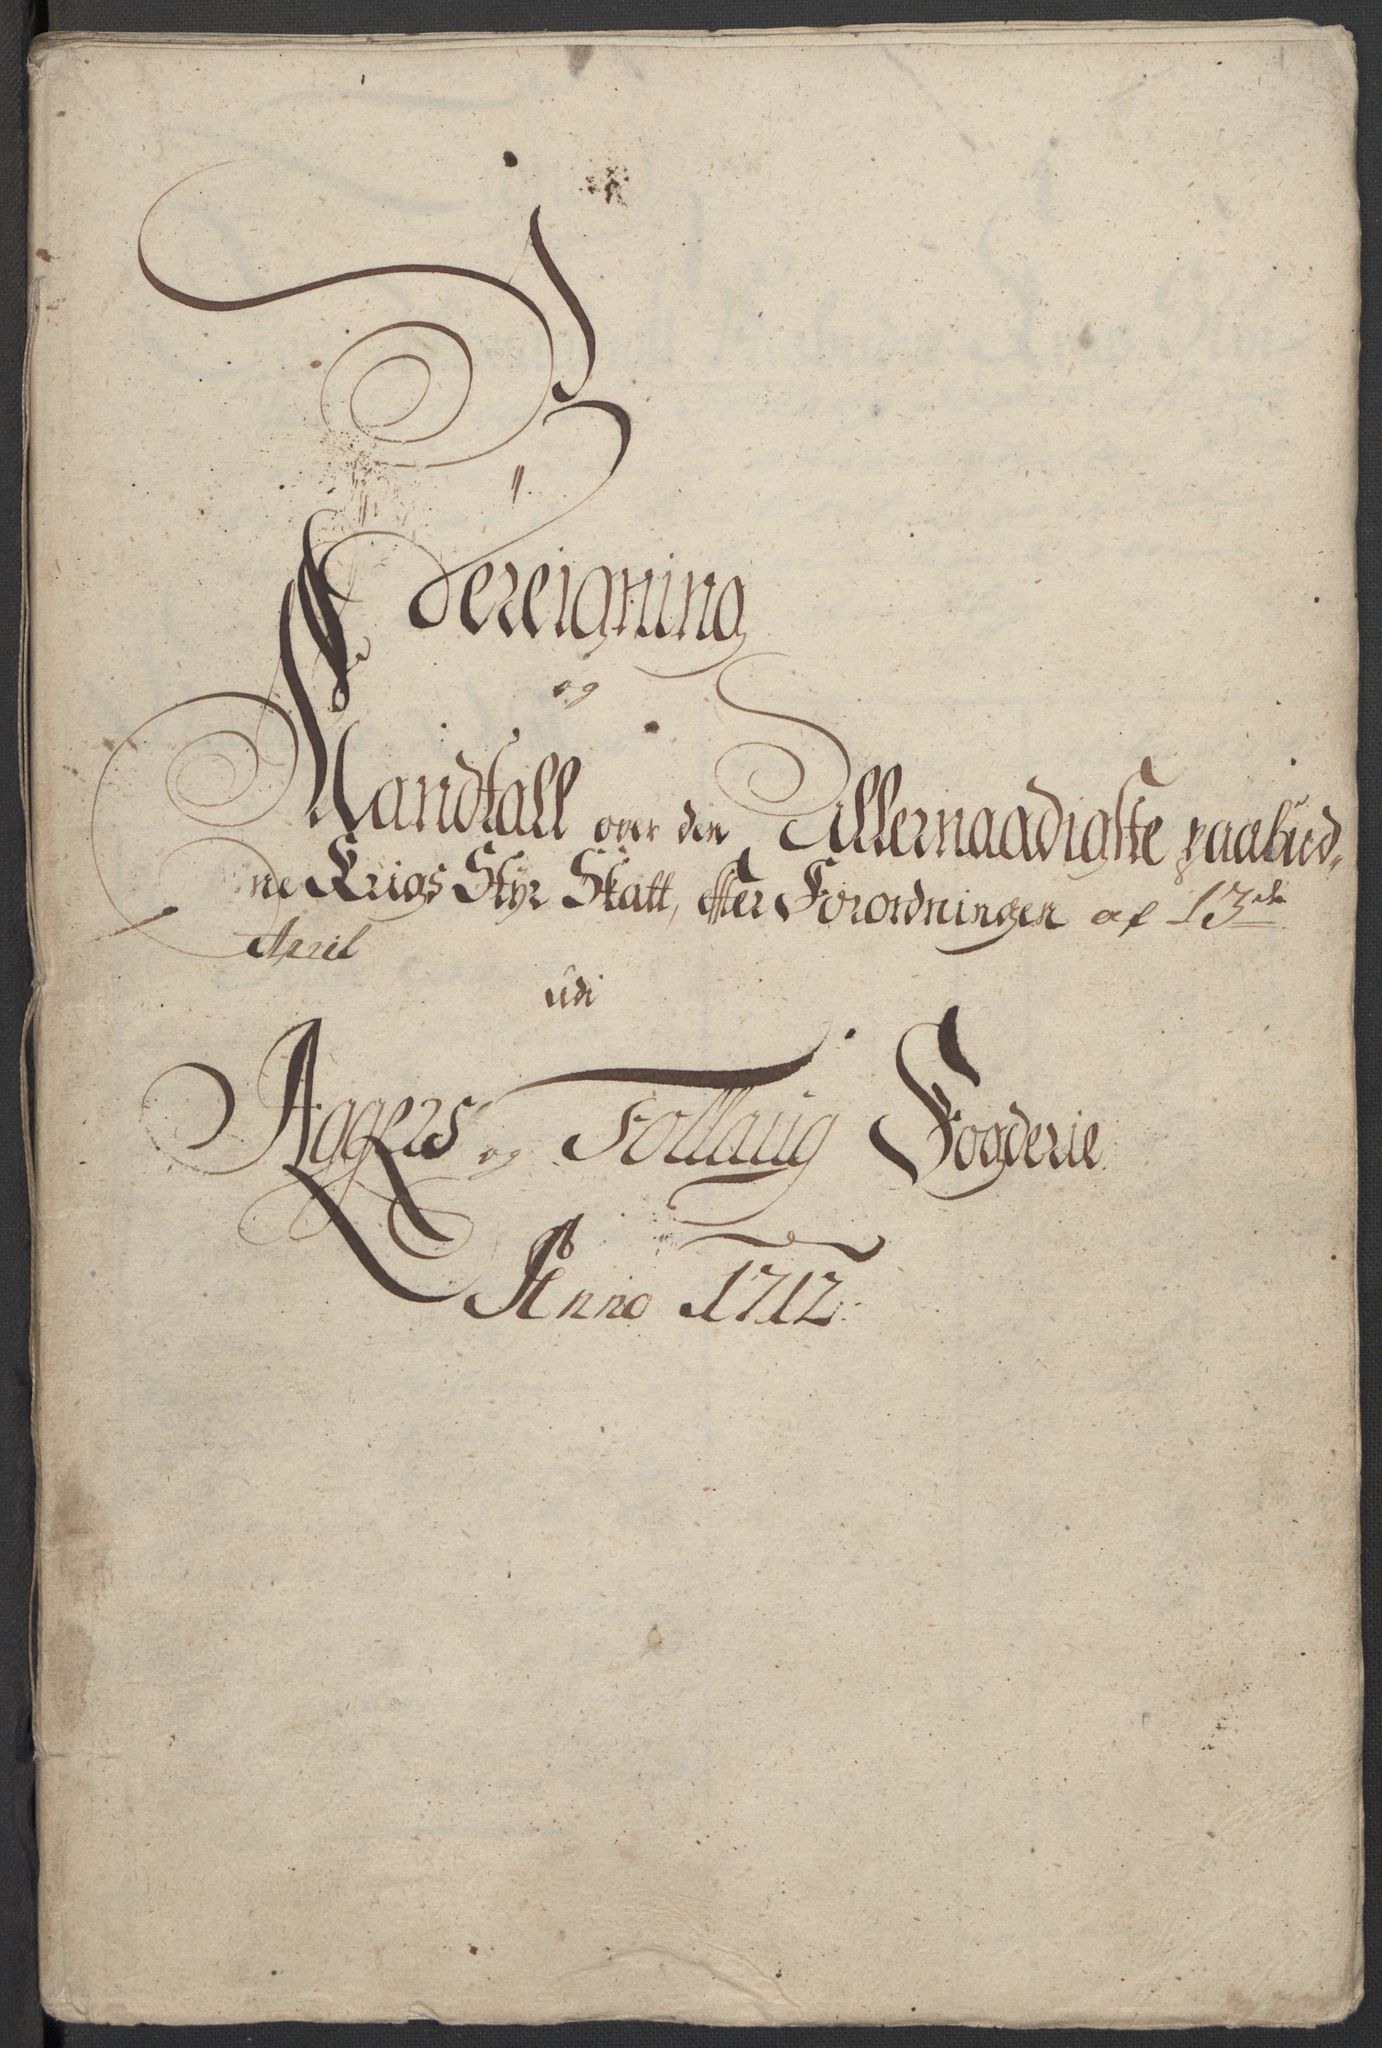 Bereigning
og
Mandtall over den Allernaadigste paabud,
ne Krigs Styr Skatt, effter Forordningen af 13de
April
udi
Aggers og Follaug Fogderie
Anno 1712.